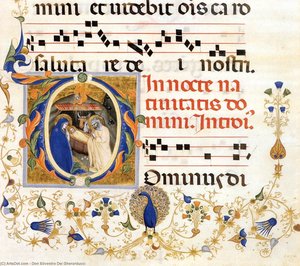 mini et videbit ois caro
salutare de i nostri.
In nocte na
tivitatis do
mini. Introi⁹.
Ominus di
(C) ArtsDot.com - Don Silvestro Dei Gherarducci